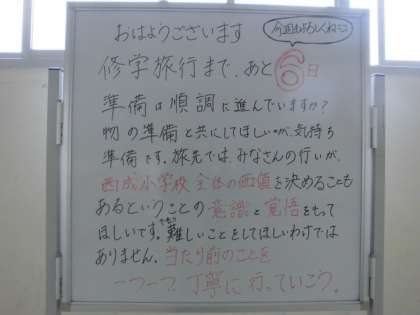 おはようございます
今週もよろしくね
修学旅行まで、あと6日
準備は順調に進んでいますか?
物の準備と共にしてほしいのが、気持ち
準備です。旅先では、みなさんの行いが、
西成小学校全体の価値を決めることも
あるということの意識と覚悟をもって
ほしいです。難しいことをしてほしいわけでは
ありません。当たり前のことを
一つ一つ、丁寧に行っていこう。